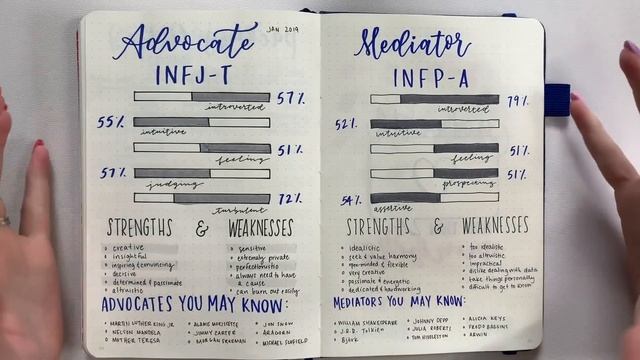 Advocate
JAN 2019
INFJ-T
57%
introverted
55%
intuitive
51%
feeling
57%
judging
72%
turbulent
STRENGTHS & WEAKNESSES
creative
insightful
inspiring & convincing
decisive
determined & passionate
altruistic
sensitive
extremely private
perfectionistic
always need to have
a cause
can burn out easily
ADVOCATES YOU MAY KNOW:
MARTIN LUTHER KING JR
NELSON MANDELA
MOTHER TERESA
ALANIS MORISSETTE
JIMMY CARTER
MORGAN FREEMAN
JON SNOW
ARAGORN
MICHAEL SCOFIELD
Mediator
INFP-A
79%
introverted
52%
intuitive
51%
feeling
51%
prospecting
54%
assertive
STRENGTHS & WEAKNESSES
idealistic
seek & value harmony
open-minded & flexible
very creative
passionate & energetic
dedicated & hardworking
too idealistic
too altruistic
impractical
dislike dealing with data
take things personally
difficult to get to know
MEDIATORS YOU MAY KNOW:
WILLIAM SHAKESPEARE
J.R.R. Tolkien
Björk
JOHNNY DEPP
JULIA ROBERTS
TOM HIDDLESTON
ALICIA KEYS
FRODO BAGGINS
ARWEN